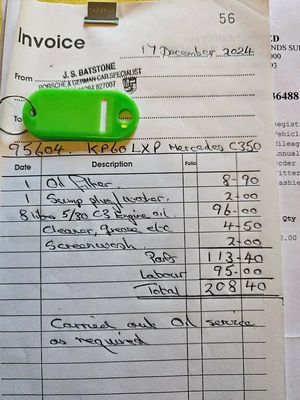 56
Invoice
17 December 2024
From
J. S. BATSTONE
PORSCHE & GERMAN CAR SPECIALIST
827007
To
95604. KP60 LXP Mercedes C350
Date Description Folio
1 Oil Filter. 8-90
1 Sump plug/washer 2-00
8 litres 5/30 C3 Engine oil. 96-00
Cleaner, grease etc 4-50
Screenwash. 2-00
Parts 113-40
Labour 95-00
Total 208 40
Carried out Oil service
as required
ED
NDS SU
000
93
86488
Regist
Vehicl
Mileag
Qty
Qty